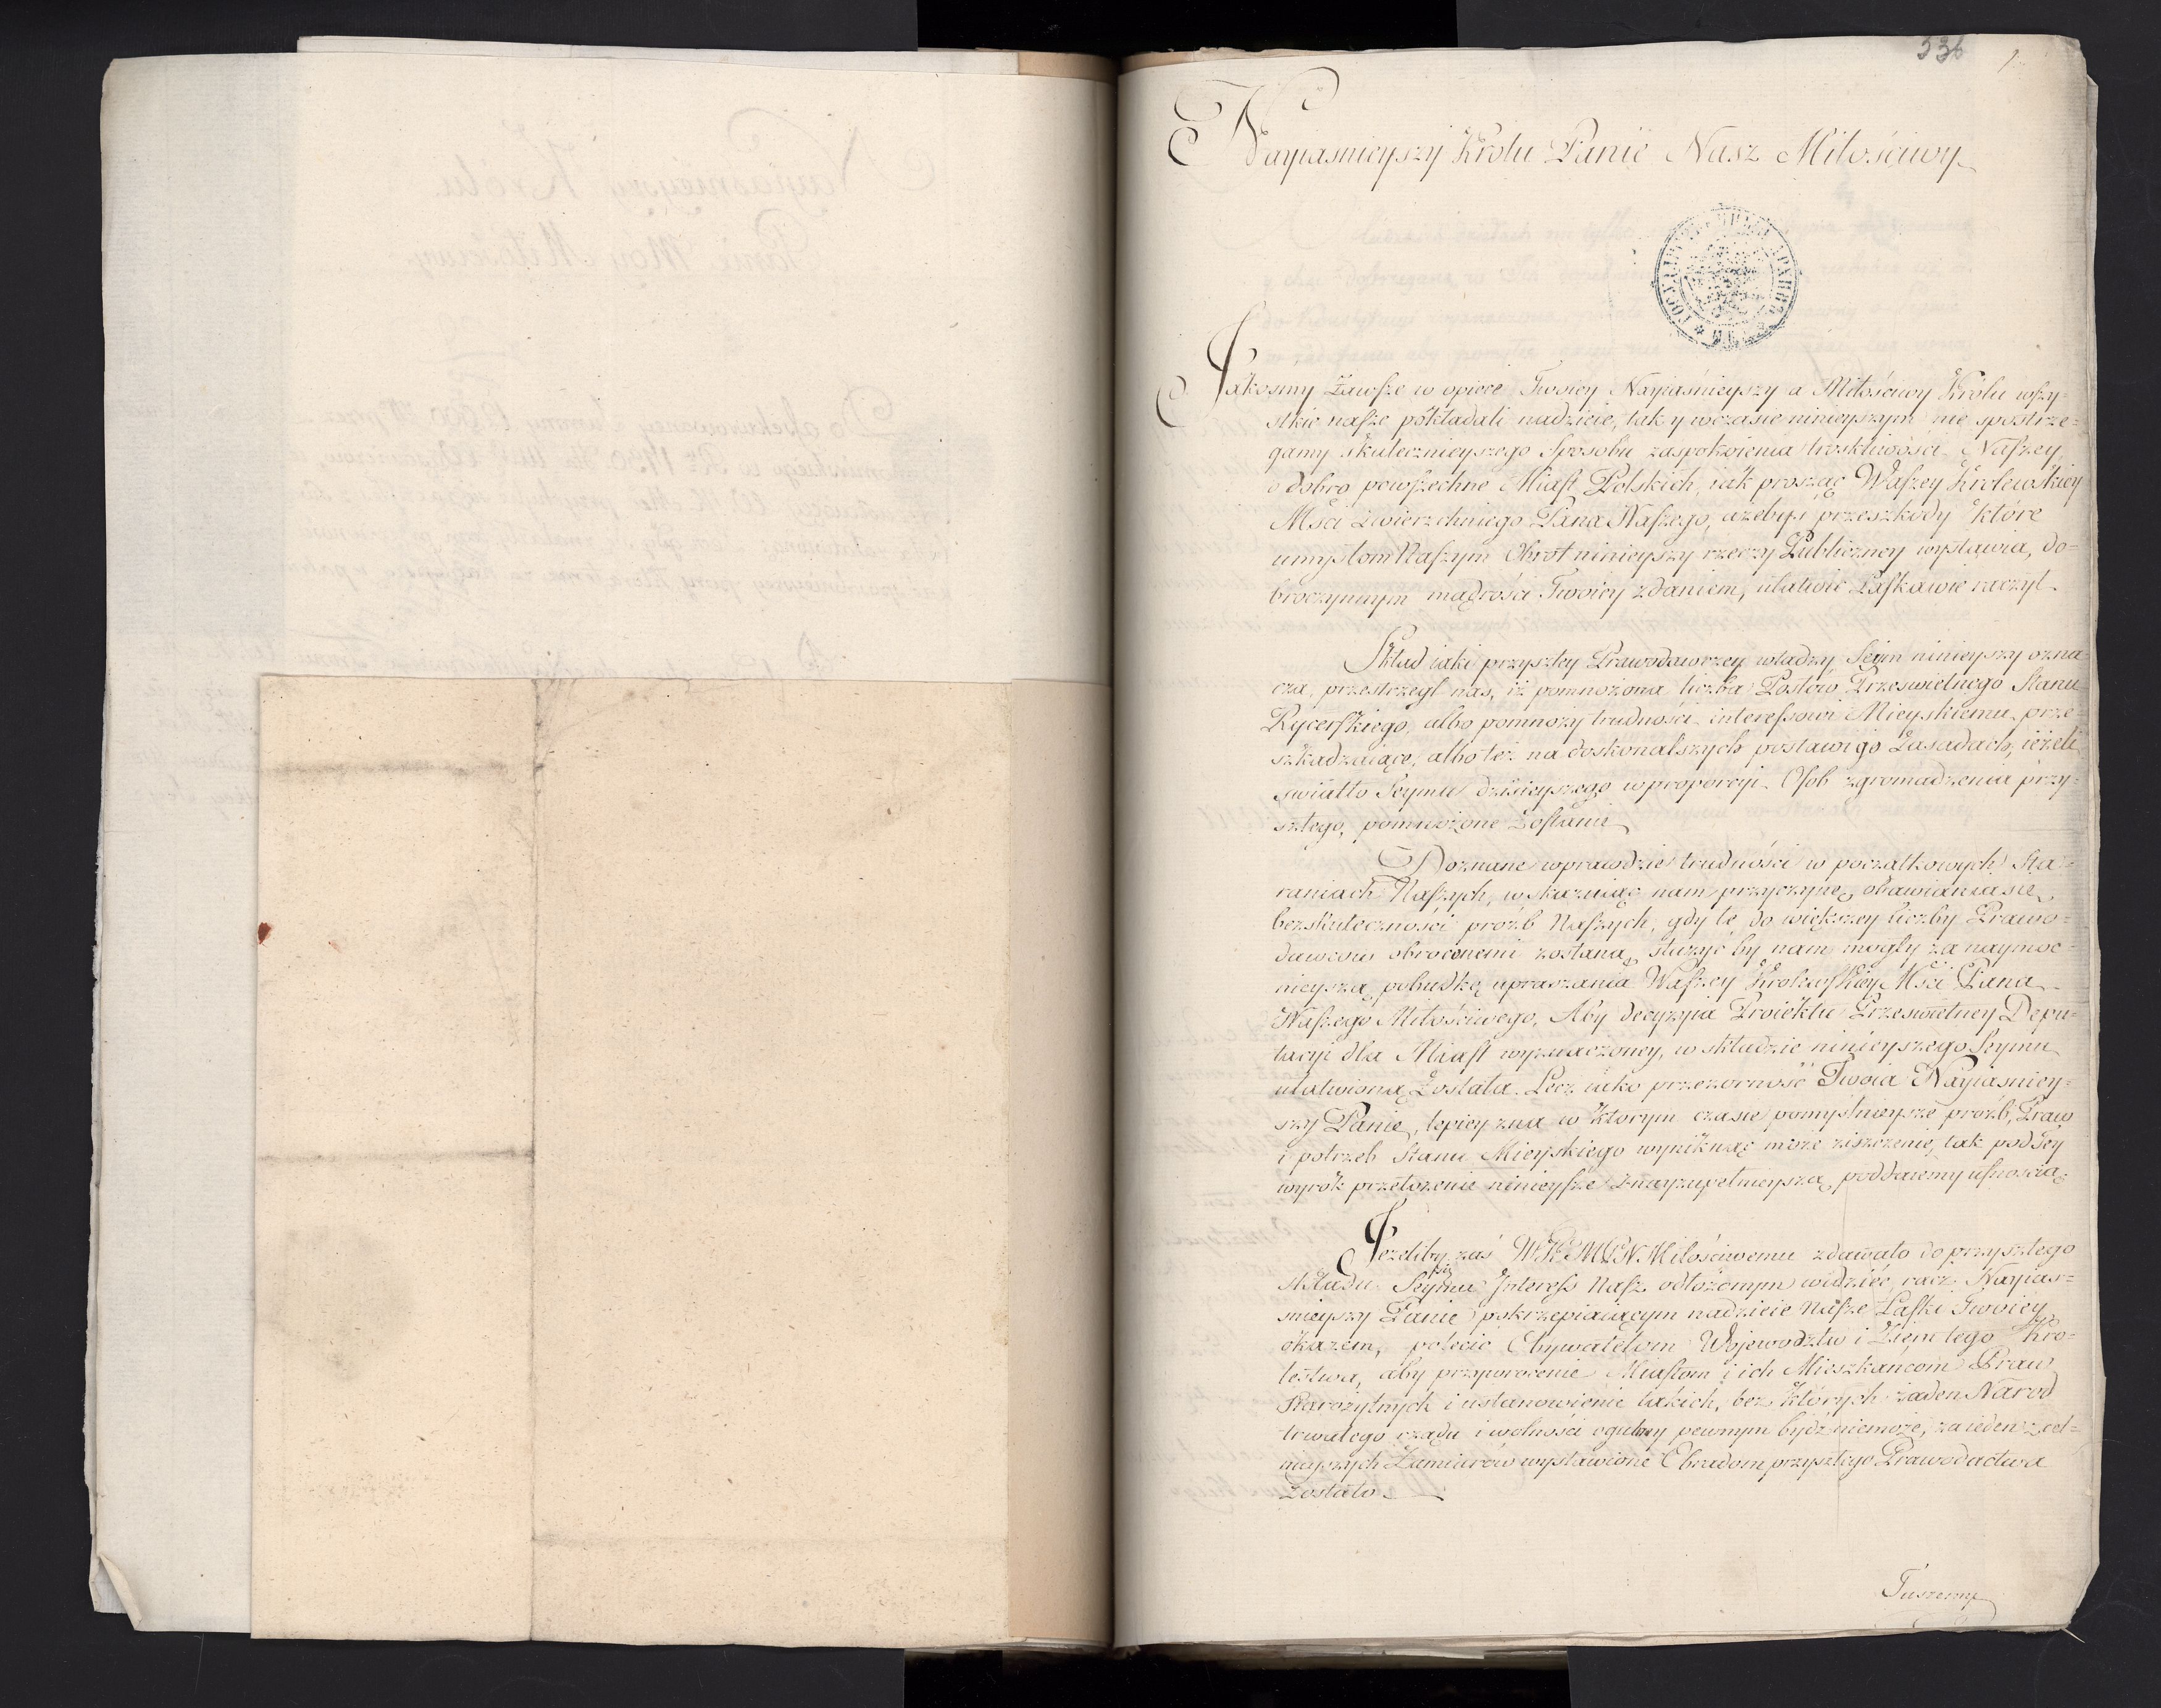 536 1
Nayiasnieyszy Krolu Panie Nasz Miłościwy
Jakosmy Zawsze w opiece Twoiey Nayiaśnieyszy a Miłościwy Królu wszy-
stkie nasze pokładali nadzieie, tak y wczasie ninieyszym nie spostrze-
gamy skutecznieyszego Sposobu zaspokoienia troskliwości Naszey
o dobro powszechne Miast Polskich, iak prosząc Waszey Krolewskiey
Mści Zwierzchniego Pana Naszego, ażebyś przeszkody które
umysłom Naszym Obrot ninieyszy rzeczy Publiczney wystawia, do-
broczynnym mądrości Twoiey zdaniem, ułatwić Łaskawie raczył.
Skład iaki przyszłey Prawodawczey władzy Seym ninieyszy ozna-
cza, przestrzegł nas, iż pomnożona liczba Posłów Prześwietnego Stanu
Rycerskiego, albo pomnoży trudności interessowi Mieyskiemu prze-
szkadzaiące, albo też na doskonalszych postawi go Zasadach, ieżeli
swiatło Seymu dzisieyszego w proporcyi Osob zgromadzenia przy-
szłego, pomnożone Zostanie
Doznane wprawdzie trudności w początkowych Sta-
raniach Naszych, wskazuiąc nam przyczynę obawiania się
bezskuteczności proźb Naszych, gdy te do większey liczby Prawo-
dawcow obroconemi zostaną, służyc by nam mogły za naymoc-
nieyszą pobudkę upraszania Waszey Krolewskiey Mści Pana
Naszego Miłościwego, Aby decyzyia Proiektu Prześwietney Depu-
tacyi dla Miast wyznaczoney, w składzie ninieyszego Seymu
ułatwioną Została. Lecz iako przezorność Twoia Nayiasniey-
szy Panie, lepiey zna w ktorym czasie pomyślnieysze proźb, Praw
i potrzeb Stanu Mieyskiego wyniknąć może ziszczenie, tak pod Jey
wyrok przełożenie ninieysze z nayzupełnieyszą poddaiemy ufnością.
Jeżeliby zaś W.K.M.P.N. Miłościwemu zdawało do przyszłego
się
składu Seymu Interess Nasz odłożonym widzieć, racz Nayias-
nieyszy Panie pokrzepiaiącym nadzieie Nasze Łaski Twoiey
okazem, polecić Obywatelom Wojewodztw i Ziem tego Kro-
lestwa, aby przywrocenie Miastom i ich Mieszkańcom Praw
Starożytnych i ustanowienie takich, bez których żaden Narod
trwałego rządu i wolności ogulney pewnym bydź niemoże, za ieden z cel-
nieyszych Zamiarów wystawione Obradom przyszłego Prawodactwa
Zostało.
Tuszemy